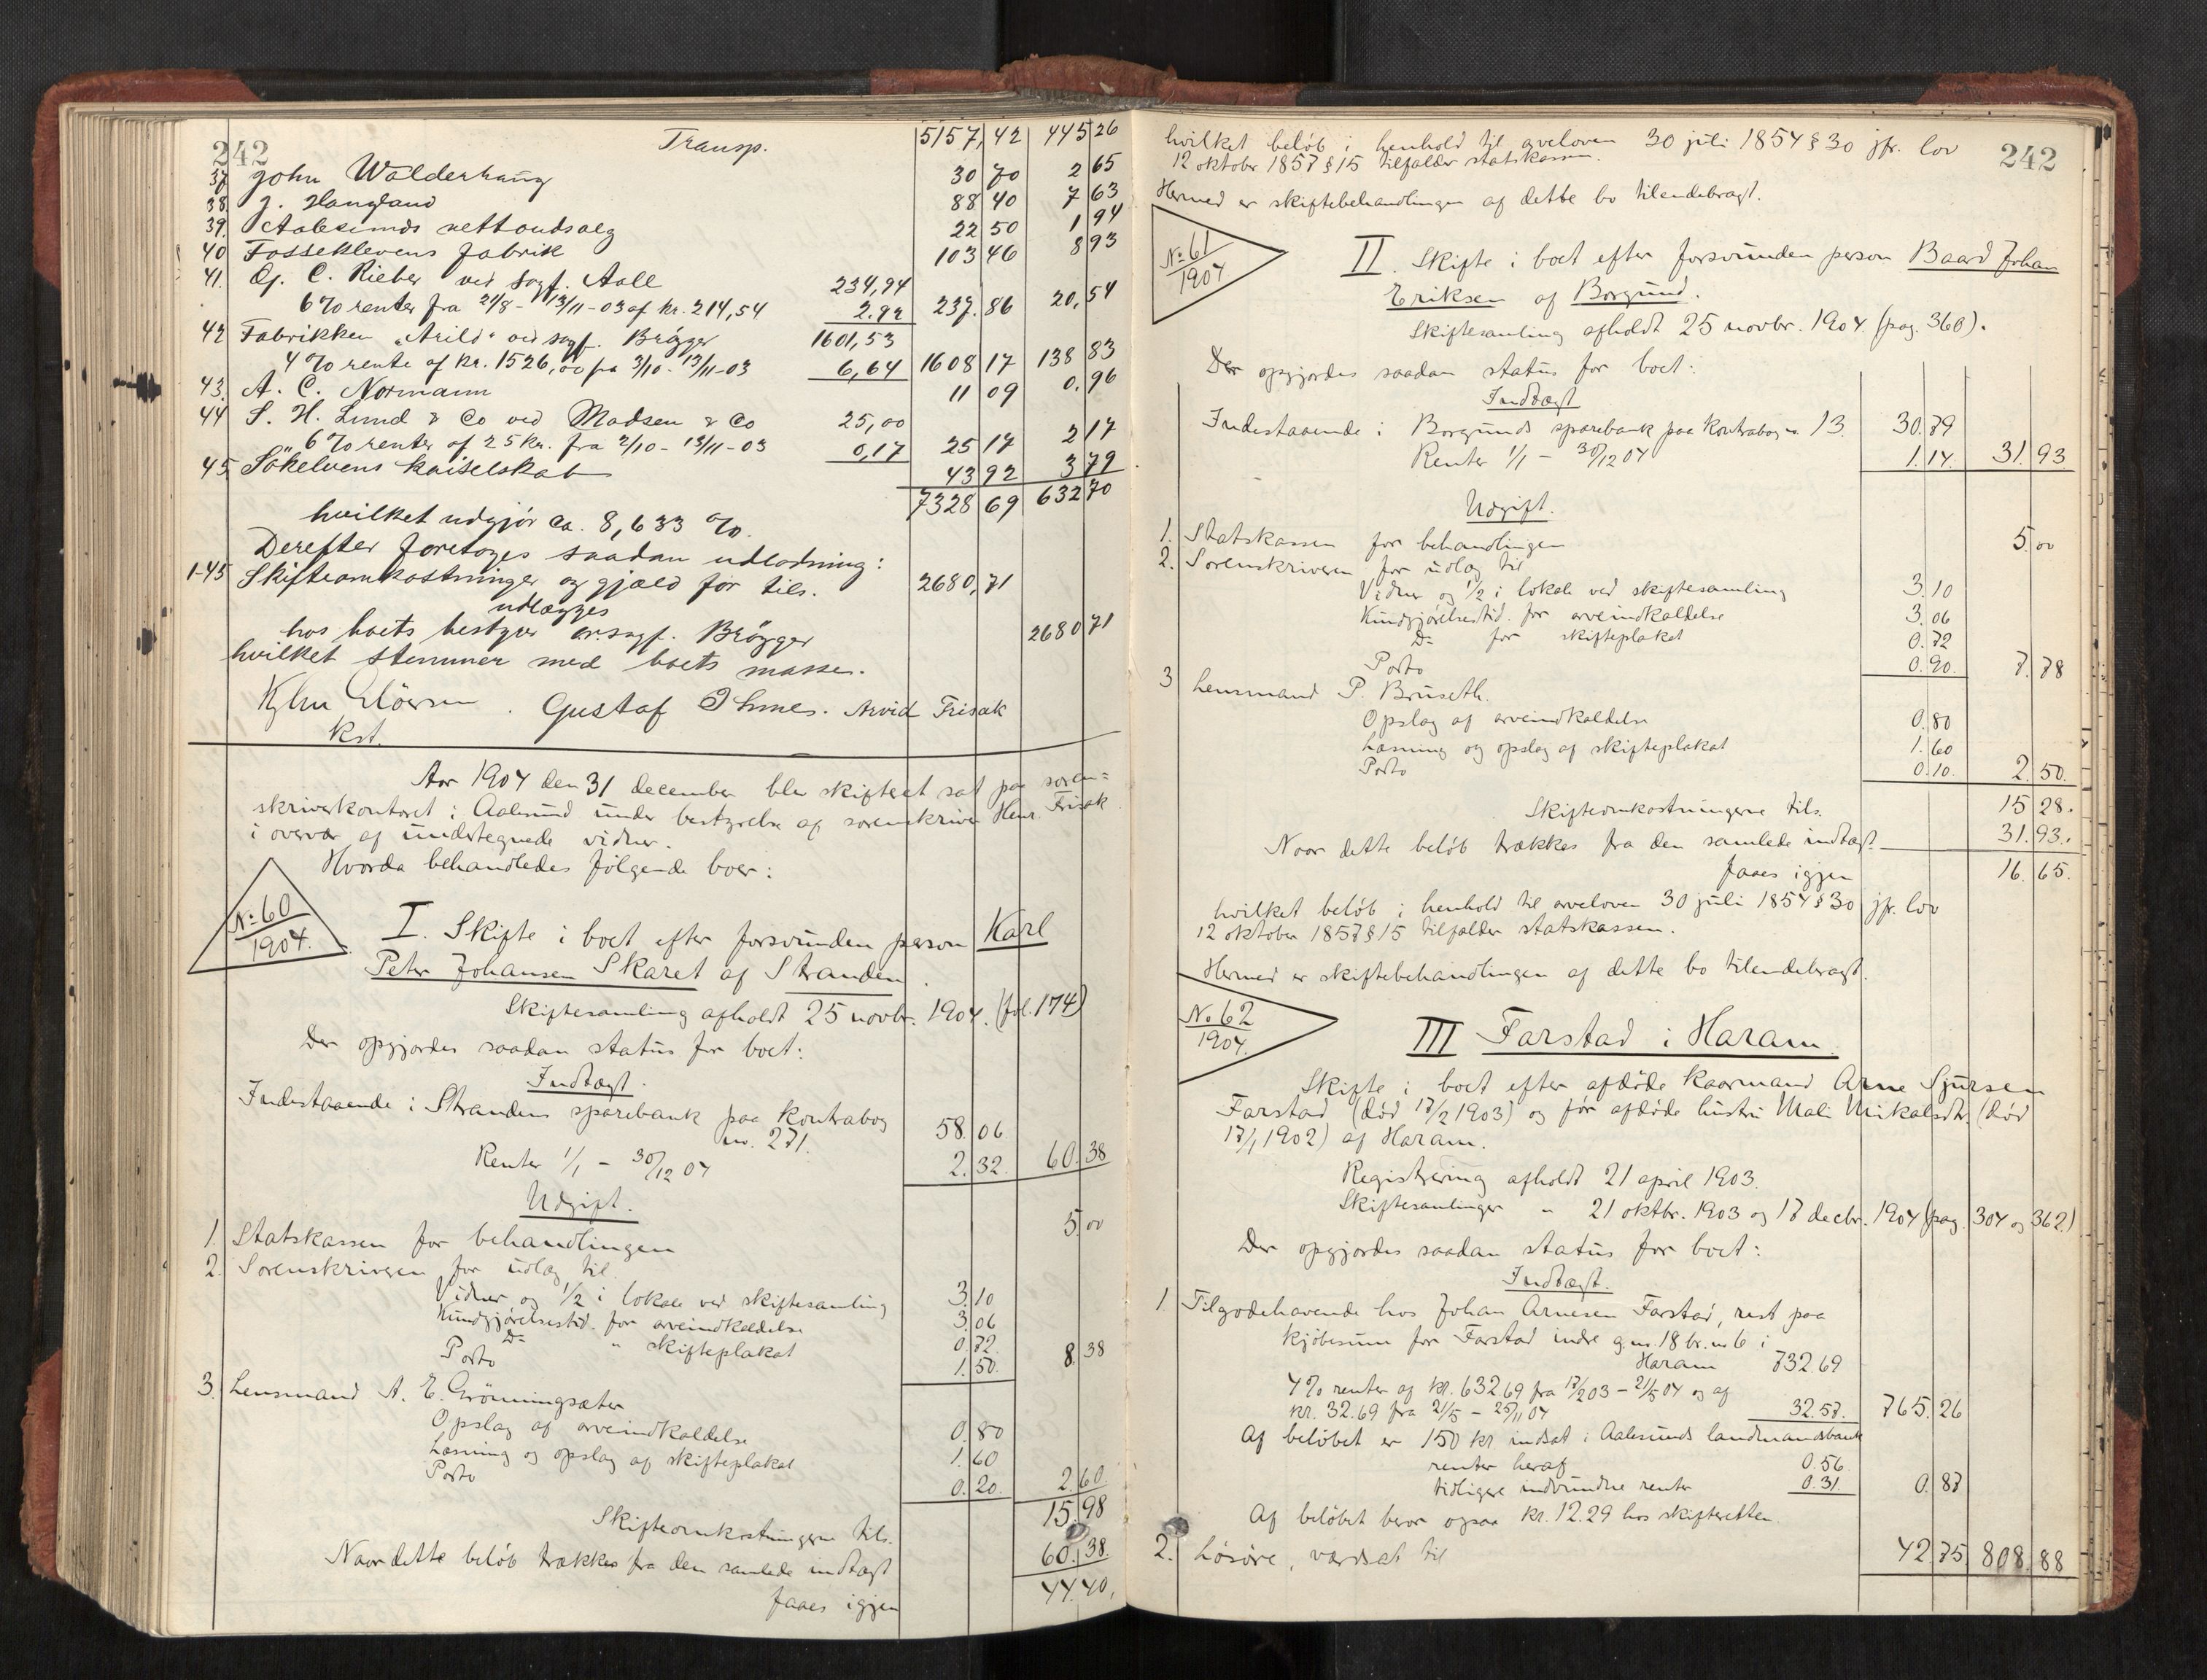 242
Transp. 5157,42 445 26
37 John Walderhaug 30 70 2 65
38 J. Haugland 88 40 7 63
39. Aalesunds nettoudsalg 22 50 1 94
40 Fosseklevens fabrik 103 46 8 93
41. Gj. C. Rieber ved sagf. Aall 234,94
6% renter fra 27/8 - 13/11-03 af kr. 214,54 2.92 237.86 20,54
42 Fabrikken "Arild" ved sagf. Brögger 1601,53
4% rente af kr. 1526,00 fra 3/10 - 13/11-03 6,64 1608 17 138 83
43. A. C. Normann 11 09 0.96
44 S. H. Lund & Co ved Madsen & Co 25,00
6% renter af 25 kr. fra 2/10 - 13/11-03 0,17 25 17 2 17
45. Sökelvens kaiselskab 43 92 3 79
7328 69 632 70
hvilket udgjör ca. 8,633 %.
Derefter foretages saadan udlodning:
1-45 Skifteomkostninger og gjæld for tils. 2680,71
udlægges
hos boets bestyrer or.sagf. Brögger 2680 71
hvilket stemmer med boets masse.
Gustaf Arvid Frisak
kst.
Aar 1904 den 31 december blev skifteret sat paa soren=
skriverkontoret i Aalesund under bestyrelse af sorenskriver Henr. Frisak
i overvær af undertegnede vidner.
Hvorda behandledes følgende boer:
No 60
1904.
I. Skifte i boet efter forsvunden person Karl
Peter Johansen Skaret af Stranden.
Skiftesamling afholdt 25 novbr. 1904. (fol. 174)
Der opgjordes saadan status for boet:
Indtægt.
Indestaaende i Strandens sparebank paa kontrabog
nr. 271. 58.06
Renter 1/1 - 30/12 04 2.32. 60.38
Udgift.
1. Statskassen for behandlingen 5.00
2. Sorenskriveren for udlæg til
Vidner og 1/2 i lokale ved skiftesamling 3.10
Kundgjørelsestid. for arveindkaldelse 3.06
Do " skifteplakat 0.72
Porto 1.50. 8.38
3. Lensmand A. E. Grönningsæter
Opslag af arveindkaldelse 0.80
Læsning og opslag af skifteplakat 1.60
Porto 0.20. 2.60.
Skifteomkostningerne tils. 15.98
Naar dette beløb trækkes fra den samlede indtægt 60.38.
faaes igjen 44.40.
242
hvilket beløb i henhold til arveloven 30 juli 1854 § 30 jfr. lov
12 oktober 1857 § 15 tilfalder statskassen.
Hermed er skiftebehandlingen af dette bo tilendebragt.
No 61
1904
II. Skifte i boet efter forsvunden person Baard Johan
Eriksen af Borgund.
Skiftesamling afholdt 25 novbr. 1904. (pag. 360).
Der opgjordes saadan status for boet:
Indtægt
Indestaaende i Borgunds sparebank paa kontrabog n. 13. 30.79
Renter 1/1 - 30/12 04 1.14. 31.93
Udgift.
1. Statskassen for behandlingen 5.00
2. Sorenskriveren for udlæg til
Vidner og 1/2 i lokale ved skiftesamling 3.10
Kundgjørelsestid. for arveindkaldelse 3.06
Do for skifteplakat 0.72
Porto 0.90. 7.78
3 Lensmand P. Bruseth.
Opslag af arveindkaldelse 0.80
Læsning og opslag af skifteplakat 1.60
Porto 0.10. 2.50.
Skifteomkostningerne tils. 15 28.
Naar dette beløb trækkes fra den samlede indtægt. 31.93.
faaes igjen 16.65.
hvilket beløb i henhold til arveloven 30 juli 1854 § 30 jfr. lov
12 oktober 1857 § 15 tilfalder statskassen.
Hermed er skiftebehandlingen af dette bo tilendebragt.
No 62
1904.
III Farstad i Haram.
Skifte i boet efter afdöde kaarmand Arne Sjursen
Farstad (död 17/2 1903) og för afdöde hustru Mali Mikalsdtr. (död
17/1 1902) af Haram.
Registrering afholdt 21 april 1903.
Skiftesamlinger " 21 oktbr. 1903 og 17 decbr. 1904 (pag. 304 og 362)
Der opgjordes saadan status for boet:
Indtægt.
1. Tilgodehavende hos Johan Arnesen Farstad, rest paa
kjöbesum for Farstad indre g.nr. 18 br.nr 6 i
Haram 732.69
4% renter af kr. 632.69 fra 17/2 03 - 21/5 04 og af
kr. 32.69 fra 21/5 - 25/11 04 32.57. 765.26
Af beløbet er 150 kr indsat i Aalesunds landmandsbank
renter heraf 0.56.
tidligere indvundne renter 0.31 0.87
Af beløbet beror ogsaa kr. 12.29 hos skifteretten.
2. Lösöre, værdsat til 42.75 808.88